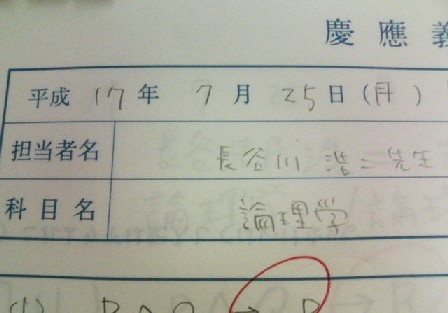 慶應義
平成 17年 7月 25日(月)
担当者名 長谷川 浩二 先生
科目名 論理学
(1) P∧Q → P